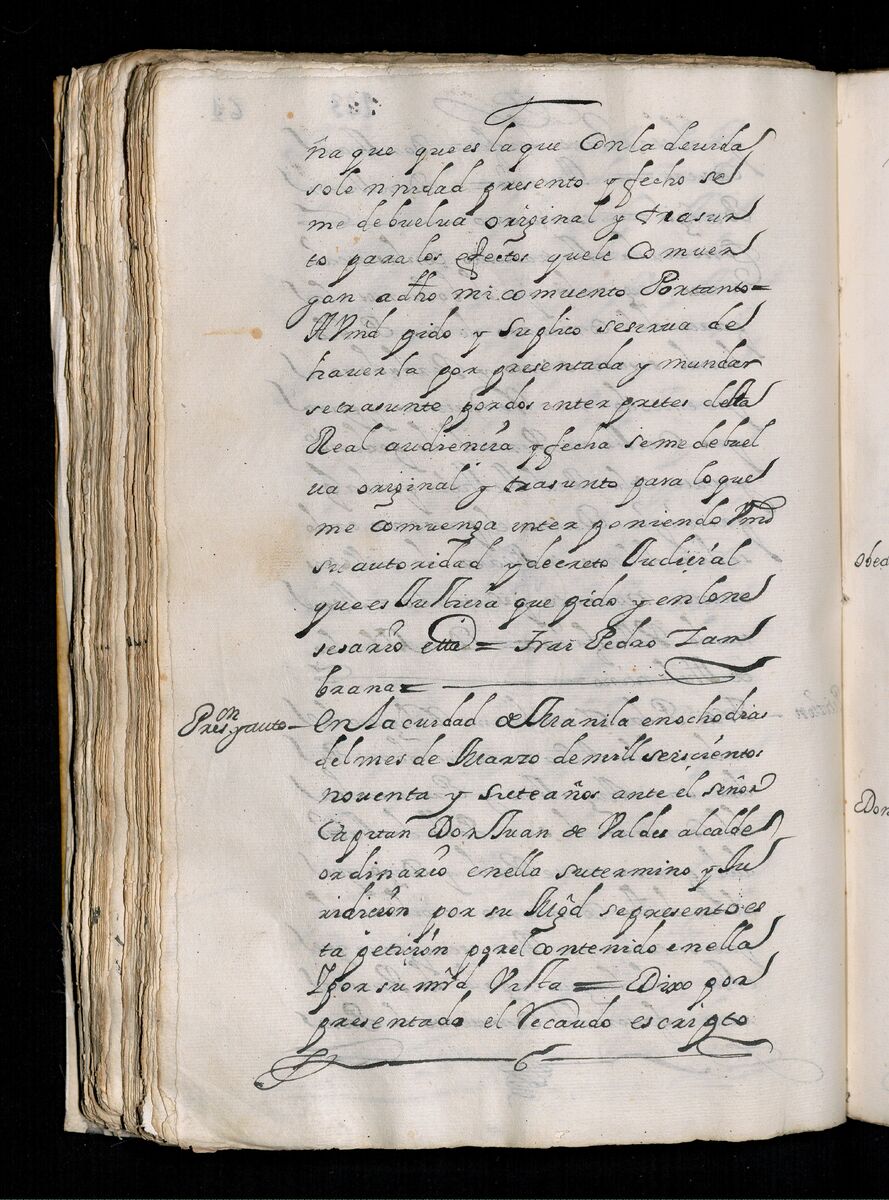 ña que que es la que Con la devida
solennidad presento y fecho se
me debuelva original y trasun
to para los efectos que le Comven
gan a dho mi comvento Portanto =
A Vmd pido y suplico se sirva de
haverla por presentada y mandar
se trasunte por dos interpretes de esta
Real audiencia y fecha se me debuel
va original y trasunto para lo que
me comvenga inter poniendo Vmd
su autoridad y decreto Judicial
que es Justicia que pido y en lo ne
sesario etta = Frai Pedro Zam
brana =
Preson y auto – En la ciudad de Manila en ocho dias
del mes de Marzo de mill seiscientos
noventa y siete años ante el señor
Capitan Don Juan de Valdes alcalde
ordinario en ella su termino y Ju
ridicion por su Magd se presento es
ta peticion por el contenido en ella
Y por su mrd Vista = Dixo por
presentado el Recaudo escripto
obed
Don